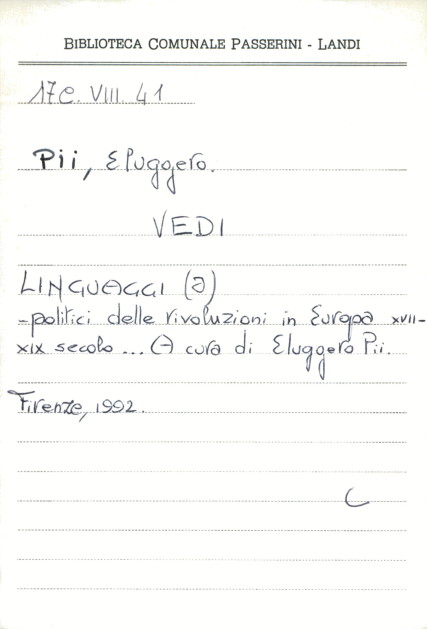 BIBLIOTECA COMUNALE PASSERINI - LANDI
17C. VIII. 41
Pii, Eluggero.
VEDI
LINGUAGGI (a)
-politici delle rivoluzioni in Europa XVII-
XIX secolo ... (A cura di Eluggero Pii.
Firenze, 1992.
C